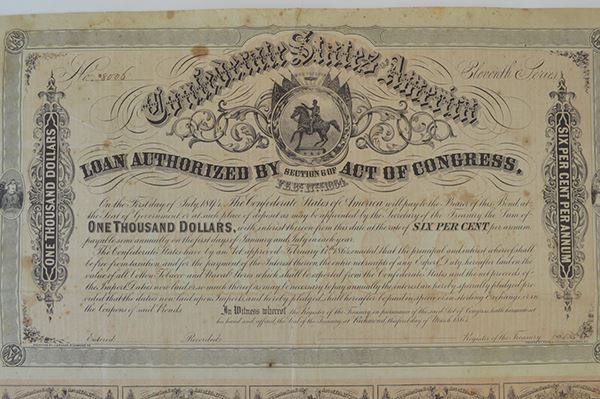 No. 8006
Eleventh Series
Confederate States America
LOAN AUTHORIZED BY SECTION 6 OF ACT OF CONGRESS.
FEBY. 17TH 1864.
ONE THOUSAND DOLLARS
SIX PER CENT PER ANNUM
On the First day of July 1894, The Confederate States of America will pay to the Bearer of this Bond at
the Seat of Government or at such place of deposit as may be appointed by the Secretary of the Treasury, the Sum of
ONE THOUSAND DOLLARS, with interest thereon from this date at the rate of SIX PER CENT per annum
payable semi annually on the first days of January and July in each year.
The Confederate States have by an Act approved February 17th 1864 enacted that the principal and interest whereof shall
be free from taxation, and for the payment of the Interest thereon the entire net receipts of any Export Duty hereafter laid on the
value of all Cotton Tobacco and Naval Stores which shall be exported from the Confederate States and the net proceeds of
the Import Duties now laid or so much thereof as may be necessary to pay annually the interest are hereby specially pledged: pro-
vided that the duties now laid upon Imports and hereby pledged shall hereafter be paid in specie or in sterling Exchange, or in
the Coupons of said Bonds.
In Witness whereof the Register of the Treasury in pursuance of the said Act of Congress hath hereunto set
his hand and affixed the seal of the Treasury at Richmond this first day of March 1865
Entered Recorded Register of the Treasury